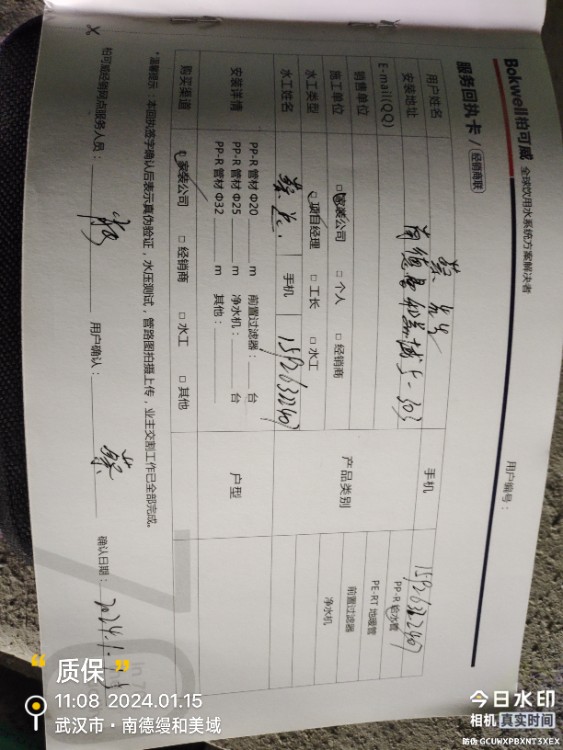 Bokwell柏可威 全球饮用水系统方案解决者
服务回执卡 / 经销商联
用户编号：
用户姓名
蔡先生
手机
15926322407
安装地址
E-mail(QQ)
销售单位
施工单位
□家装公司 □个人 □经销商
水工类型
□项目经理 □工长 □水工
水工姓名
手机
15926322407
产品类别
PP-R 给水管
PE-RT 地暖管
前置过滤器
净水机
安装详情
PP-R 管材 Φ20 ___ m 前置过滤器：___ 台
PP-R 管材 Φ25 ___ m 净水机：___ 台
PP-R 管材 Φ32 ___ m 其他：
户型
购买渠道
□家装公司 □经销商 □水工 □其他
*温馨提示：本回执签字确认后表示真伪验证，水压测试，管路图拍摄上传，业主交割工作已全部完成。
柏可威经销网点服务人员：
用户确认：
蔡
确认日期：
2024.1.15
“ 质保 ”
11:08 2024.01.15
武汉市·南德缦和美域
今日水印
相机 真实时间
防伪 GCUWXPBXNT3XEX